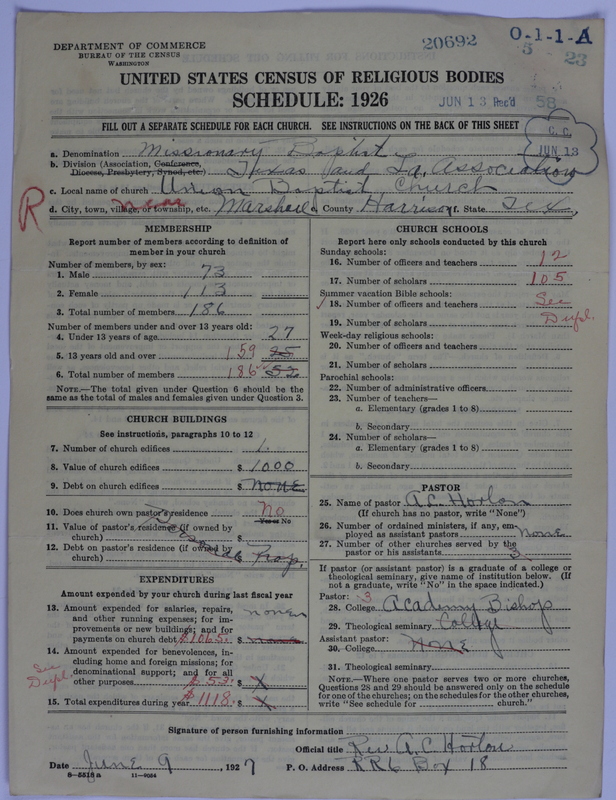 DEPARTMENT OF COMMERCE
BUREAU OF THE CENSUS
WASHINGTON
20692
O-1-1-A
5 23
UNITED STATES CENSUS OF RELIGIOUS BODIES
SCHEDULE: 1926
JUN 13 Rec'd 58
FILL OUT A SEPARATE SCHEDULE FOR EACH CHURCH. SEE INSTRUCTIONS ON THE BACK OF THIS SHEET
C. C.
JUN 13
a. Denomination Missionary Baptist
b. Division (Association, Conference, Diocese, Presbytery, Synod, etc.) Texas and La. Association
c. Local name of church Union Baptist Church
d. City, town, village, or township, etc. near Marshall e. County Harrison f. State Tex,
R
MEMBERSHIP
Report number of members according to definition of
member in your church
Number of members, by sex:
1. Male 73
2. Female 113
3. Total number of members 186
Number of members under and over 13 years old:
4. Under 13 years of age 27
5. 13 years old and over 159 25
6. Total number of members 186 52
NOTE.—The total given under Question 6 should be the
same as the total of males and females given under Question 3.
CHURCH BUILDINGS
See instructions, paragraphs 10 to 12
7. Number of church edifices 1.
8. Value of church edifices $ 1000
9. Debt on church edifices $ NONE
10. Does church own pastor's residence No
Yes or No
11. Value of pastor's residence (if owned by
church) $
12. Debt on pastor's residence (if owned by
church) $ Prop.
EXPENDITURES
Amount expended by your church during last fiscal year
13. Amount expended for salaries, repairs,
and other running expenses; for im-
provements or new buildings; and for
payments on church debt $1065. $
14. Amount expended for benevolences, in-
cluding home and foreign missions; for
denominational support; and for all
other purposes $53. $ X
See Dupl.
15. Total expenditures during year $1118. $ X
CHURCH SCHOOLS
Report here only schools conducted by this church
Sunday schools:
16. Number of officers and teachers 12
17. Number of scholars 105
Summer vacation Bible schools:
18. Number of officers and teachers See
19. Number of scholars Dupl.
Week-day religious schools:
20. Number of officers and teachers
21. Number of scholars
Parochial schools:
22. Number of administrative officers
23. Number of teachers—
a. Elementary (grades 1 to 8)
b. Secondary
24. Number of scholars—
a. Elementary (grades 1 to 8)
b. Secondary
PASTOR
25. Name of pastor A.C. Horton
(If church has no pastor, write "None")
26. Number of ordained ministers, if any, em-
ployed as assistant pastors None
27. Number of other churches served by the
pastor or his assistants 3
If pastor (or assistant pastor) is a graduate of a college or
theological seminary, give name of institution below. (If
not a graduate, write "No" in the space indicated.)
Pastor: 3
28. College Academy Bishop
29. Theological seminary College
Assistant pastor:
30. College None
31. Theological seminary
NOTE.—Where one pastor serves two or more churches,
Questions 28 and 29 should be answered only on the schedule
for one of the churches; on the schedules for the other churches,
write "See schedule for church."
Signature of person furnishing information
Official title Rev A.C Horton
Date June 9, 1927 P. O. Address RR6 Box 18
8—5518 a 11—9084